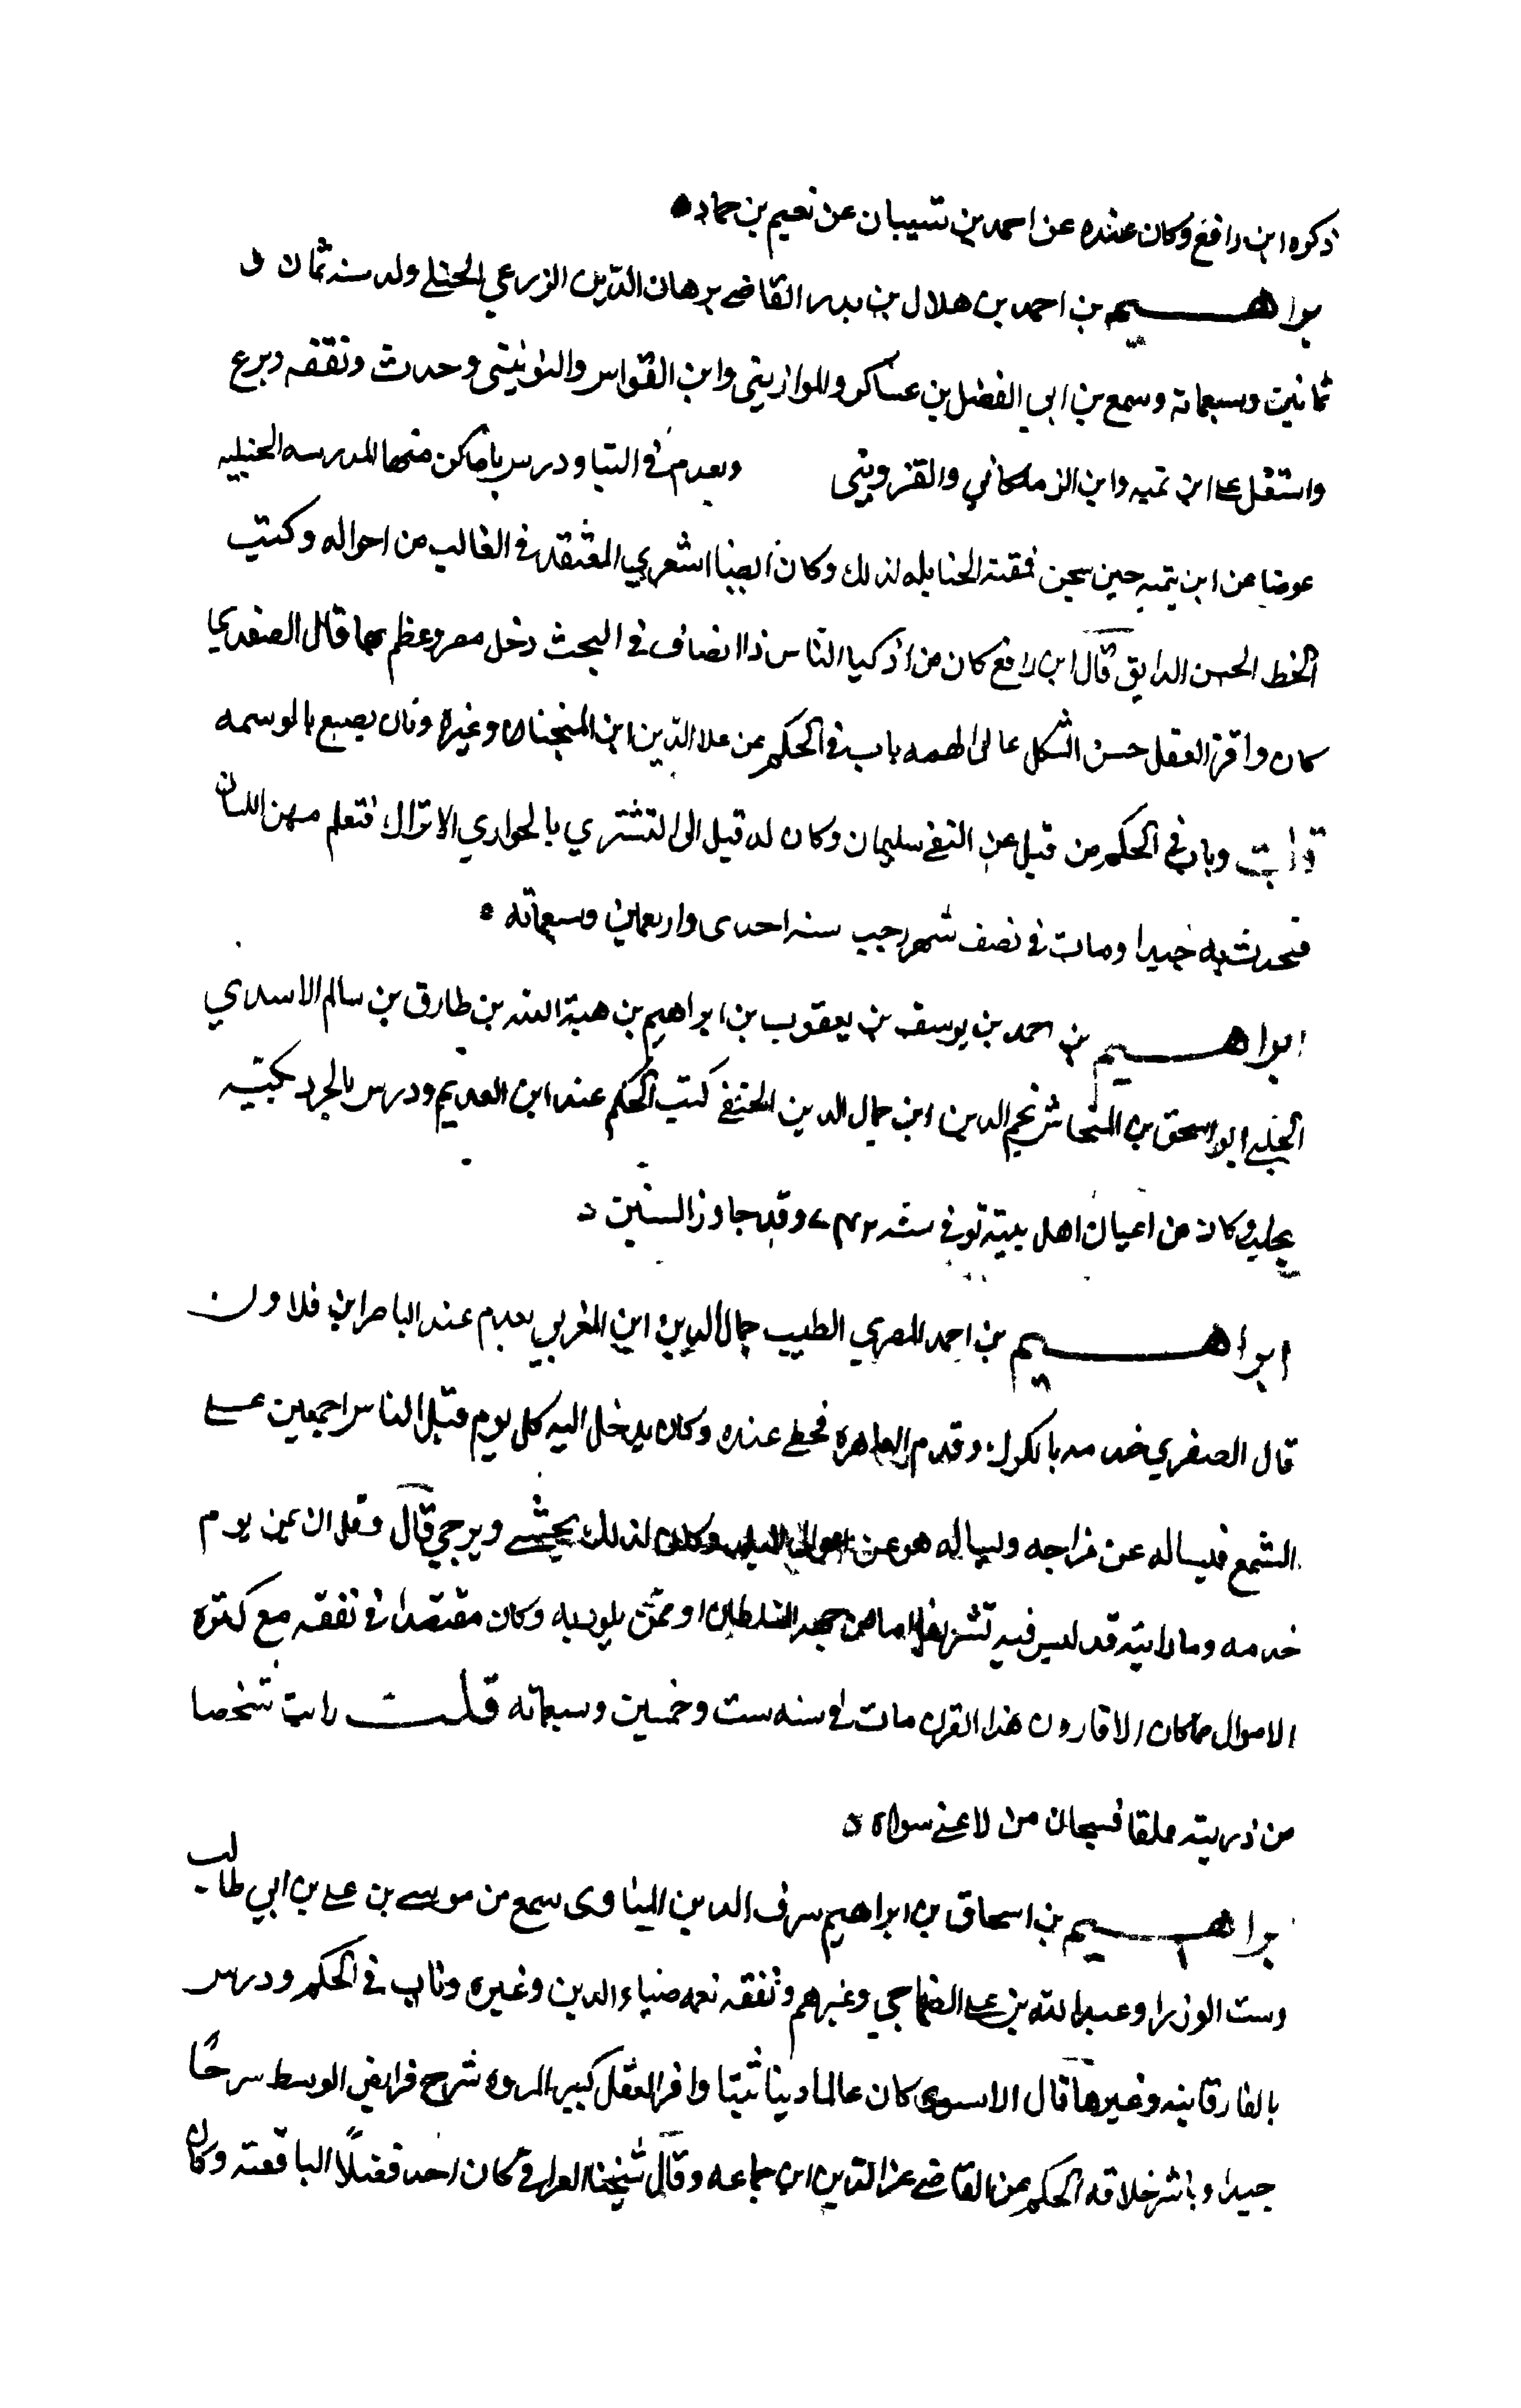 ذكره ابن رافع وكان عنده عن احمد بن شيبان عن نعيم بن حماد
براهيم بن احمد بن هلال بن بدر القاضي برهان الدين الزرعي الحنبلي ولد سنه ثمان و
ثمانين وسبعماية وسمع من ابي الفضل بن عساكر والموازيني وابن القواس واليونيني وحدث وتفقه وبرع
واشتغل على ابن تميه وابن الزملكاني والقزويني وتقدم في الفتيا ودرس باماكن منها المدرسه الحنبليه
عوضا عن ابن تيميه حين سجن فمقته الحنابله لذلك وكان ايضا اشعري المعتقد في الغالب من احواله وكتب
الخط الحسن الرايق قال ابن رافع كان من اذكيا الناس ذا انصاف في البحث دخل مصر وعظم بها قال الصفدي
كان وافر العقل حسن الشكل عالي الهمه ناب في الحكم عن علا الدين ابن المنجا وغيره وكان يصبغ بالوسمه
قلت وناب في الحكم من قبل عن التقي سليمان وكان له قيل الى التشتري بالجواري الاتراك فتعلم منهن اللسان
فتحدث به جيدا ومات في نصف شهر رجب سنه احدى واربعين وسبعمائه
ابراهيم بن احمد بن يوسف بن يعقوب بن ابراهيم بن هبة الله بن طارق بن سالم الاسدي
الحلبي ابو اسحق بن النحاس نجم الدين ابن جمال الدين الحنفي كتب الحكم عند ابن العديم ودرس بالجرديكيه
بحلب وكان من اعيان اهل بيته توفي سنه ٧٤٢ وقد جاوز الستين
ابراهيم بن احمد المصري الطبيب جمال الدين ابن المغربي تقدم عند الناصر ابن قلاون
قال الصفدي خدمه بالكرك وقدم القاهره فحظي عنده وكان يدخل اليه كل يوم قبل الناس اجمعين على
الشمع فيساله عن مزاجه ويساله هو عن احوال البلد وكان لذلك يخشى ويرجي قال وقل ان يمر يوم
خدمه وما رايته قد لبس فيه تشريفا اما من جهه السلطان او ممن يلوذ به وكان مقتصدا في نفقه مع كثرة
الاموال ما كان الا قارون هذا القرن مات في سنه ست وخمسين وسبعمائه قلت رايت شخصا
من ذريته مملقا فسبحان من لا غني سواه
براهيم بن اسحاق بن ابراهيم شرف الدين المناوى سمع من موسى بن علي بن ابي طالب
وست الوزرا وعبد الله بن علي الصنهاجي وغيرهم وتفقه بعمه ضياء الدين وغيره وناب في الحكم ودرس
بالفارقانيه وغيرها قال الاسنوي كان عالما دينا ثبتا وافر العقل كبير المروه شرح فرايض الوسيط شرحًا
جيدا وباشر خلافه الحكم عن القاضي عز الدين ابن جماعه وقال شيخنا العراقي كان احد فضلا الشافعيه وكان